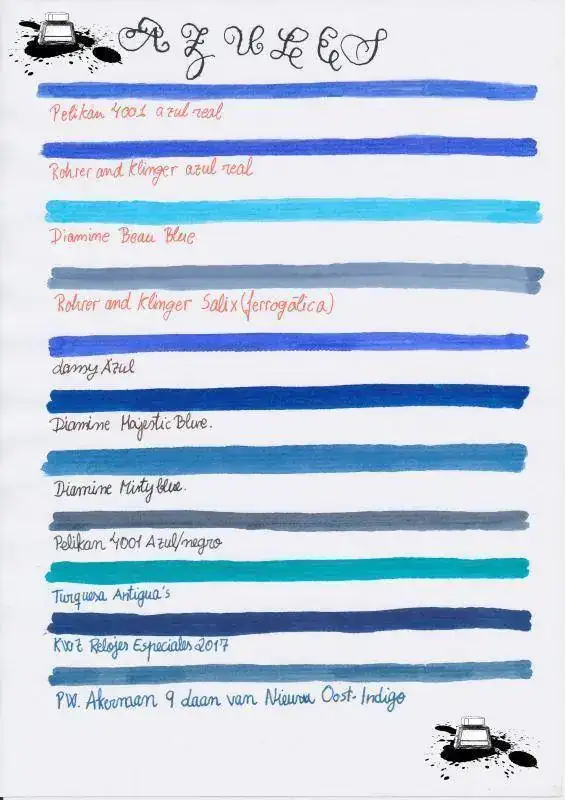 AZULES
Pelikan 4001 azul real
Rohrer and Klinger azul real
Diamine Beau Blue
Rohrer and Klinger Salix (ferrogálica)
damy Azul
Diamine Majestic Blue.
Diamine Misty blue.
Pelikan 4001 Azul/negro
Turquesa Antigua's
KWZ Relojes Especiales 2017
P.W. Akernaan 9 daan van Nieuwu Oost-Indigo